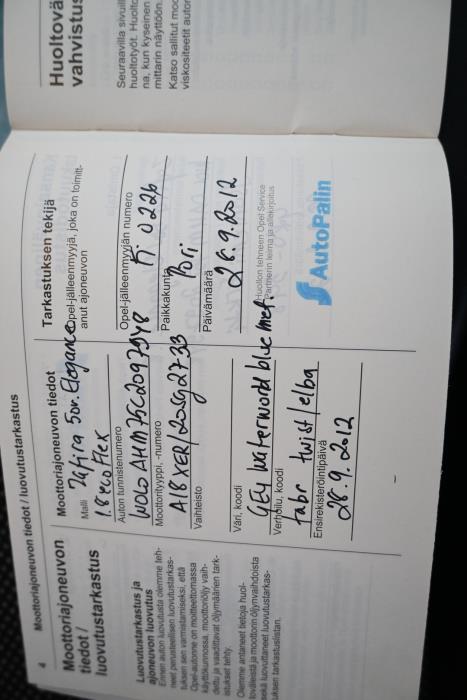 4 Moottoriajoneuvon tiedot / luovutustarkastus
Moottoriajoneuvon
tiedot /
luovutustarkastus
Luovutustarkastus ja
ajoneuvon luovutus
Ennen auton luovutusta olemme teh-
neet perusteellisen luovutustarkas-
tuksen sen varmistamiseksi, että
Opel-autonne on moitteettomassa
käyttökunnossa, moottoriöljy vaih-
dettu ja vaadittavat öljymäärien tark-
istukset tehty.
Olemme antaneet tietoja huol-
toväleistä ja moottorin öljynvaihdoista
sekä luovuttaneet luovutustarkas-
tuksen tarkastuslistan.
Moottoriajoneuvon tiedot
Malli Zafira 5ov. Elegance
1.8 ecoFlex
Auton tunnistenumero
WOLOAHM75C2097948
Moottorityyppi, -numero
A18XER/20SG2733
Vaihteisto
Väri, koodi
GEY Waterworld blue met.
Verhoilu, koodi
fabr twist/elba
Ensirekisteröintipäivä
28.9.2012
Tarkastuksen tekijä
Opel-jälleenmyyjä, joka on toimitt-
anut ajoneuvon
Opel-jälleenmyyjän numero
Fi 0226
Paikkakunta
Pori
Päivämäärä
28.9.2012
Huollon tehneen Opel Service
Partnerin leima ja allekirjoitus
AutoPalin
Huoltovä
vahvistus
Seuraavilla sivuill
huoltotyöt. Huolto
na, kun kyseinen
mittarin näyttöön.
Katso sallitut moo
viskositeetit autor